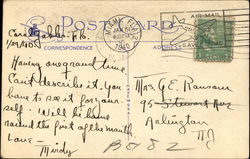 POST CARD
CORRESPONDENCE
ADDRESS
MIAMI, FLA.
1940
AIR MAIL
Coral Gables, Fla.
Having a grand time.
Can't describe it. You
have to see it for your-
self. Will be home
around the first of the month.
Love
Mrs. G. E. Ransom
95 Stewart Ave
Arlington
N.J.